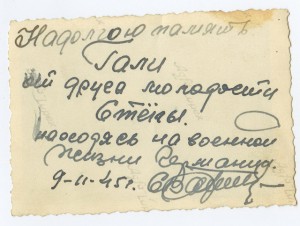 На долгою память
Гали
от друга молодости
Стёпы.
находясь на военной
жизни Германия.
9-11-45г.